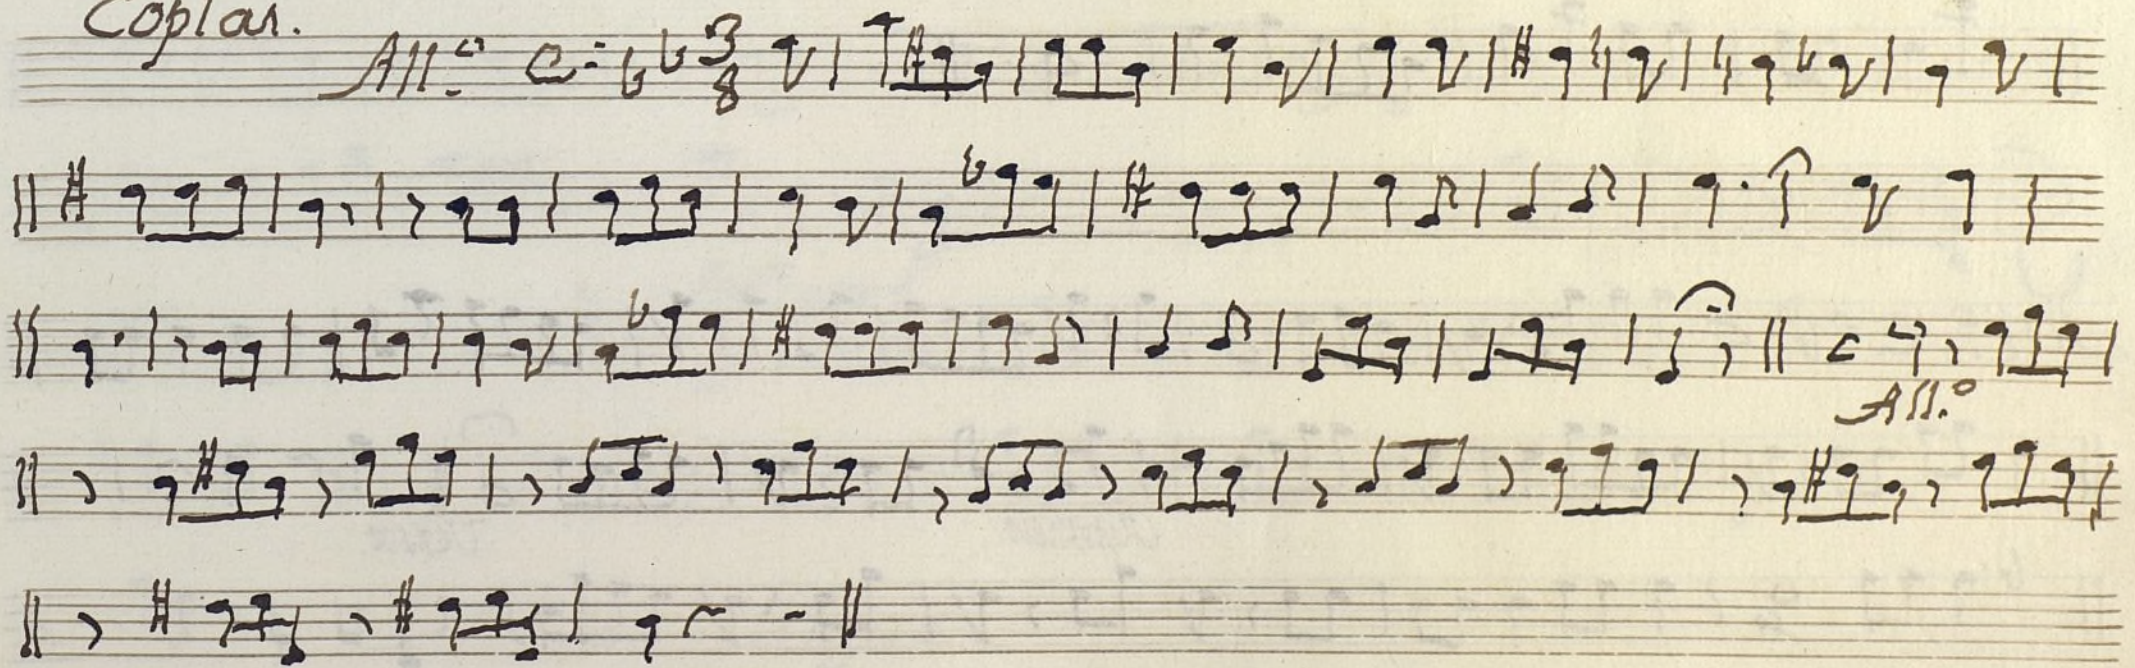 Coplas.
All.º 3/8
All.º